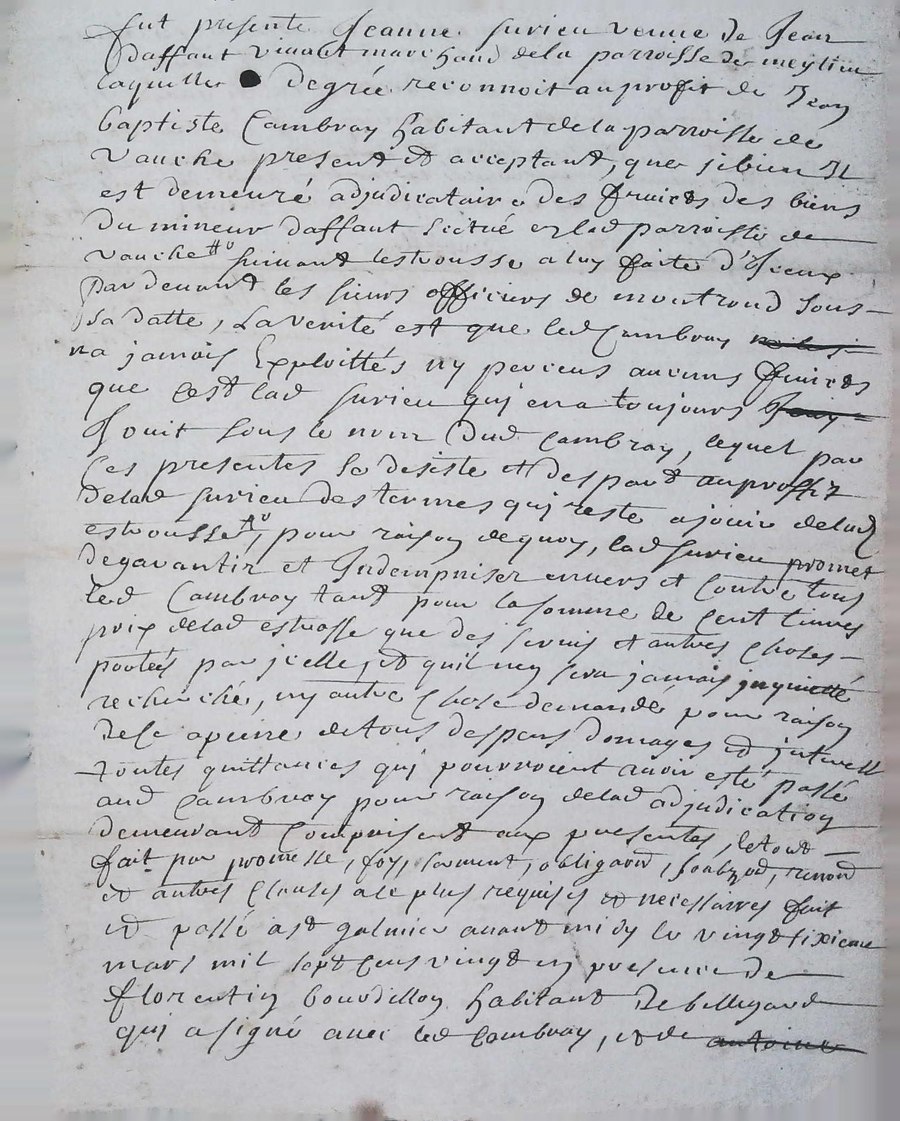 fut presente Jeanne surieu veuve de Jean
daffaut vivant marchand dela parroisse de meylieu
laquelle de gré reconnoit au profit de Jean
baptiste Cambray habitant dela parroisse de
vauche present et acceptant, que sibien Il
est demeuré adjudicataire des fruicts des biens
du mineur daffaut scitué en lad parroisse de
vauche suivant lestrousse a luy faite d'Iceux
pardevant les sieurs officiers de montrond sous
sa datte, La verité est que led Cambray
na jamais Exploittés ny perceus aucuns fruicts
que cest lad surieu qui en a toujours
Jouit sous le nom dud Cambray, lequel par
ces presentes se desiste et despart au proffit
delad surieu des termes qui reste a jouir delad
estrousse, pour raison dequoy, lad surieu promet
degarantir et Indempniser envers et contre tous
led Cambray tant pour la somme de cent livres
prix delad estrosse que des servis et autres choses
portées par jcelle, et quil ney sera jamais jnquietté
recherché, ny autre chose demandé pour raison
dece a peine de tous despens domages et jnterest
toutes quittances qui pourroient avoir esté passé
aud Cambray pour raison delad adjudication
demeurant comprises aux presentes, le tout
fait par promesse, foy, serment, obligaon, renond
et autres clauses ale plus requises et necessaires fait
et passé a st galmier avant midy le vingt sixieme
mars mil sept cens vingt en presence de
florentin bourdillon habitant de bellegarde
qui a signé avec led Cambray, et de antoine